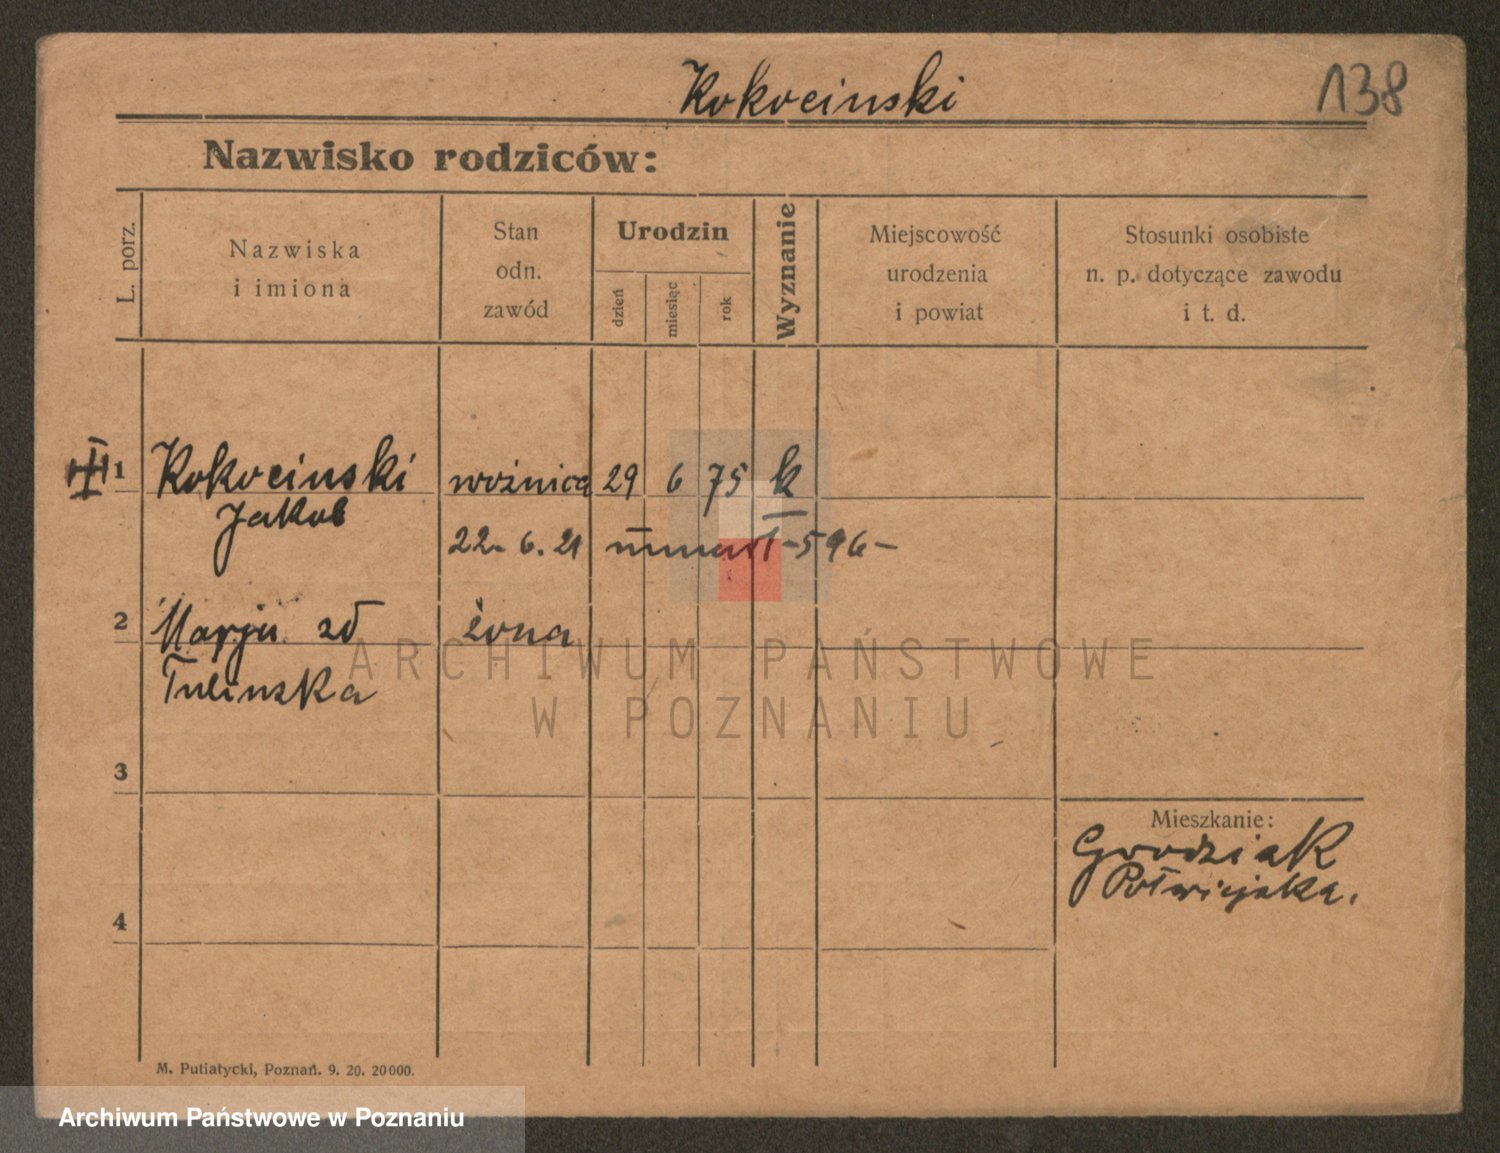 Kokocinski
138
Nazwisko rodziców:
L. porz.
Nazwiska
i imiona
Stan
odn.
zawód
Urodzin
dzień
miesiąc
rok
Wyznanie
Miejscowość
urodzenia
i powiat
Stosunki osobiste
n. p. dotyczące zawodu
i t. d.
1 Kokocinski woźnica 29 6 75 k
Jakob
22. 6. 21 umarł -596-
2 Marja zd żona
Tulinska
ARCHIWUM PAŃSTWOWE
W POZNANIU
3
Mieszkanie:
Grodziak
4
M. Putiatycki, Poznań. 9. 20. 20000.
Archiwum Państwowe w Poznaniu